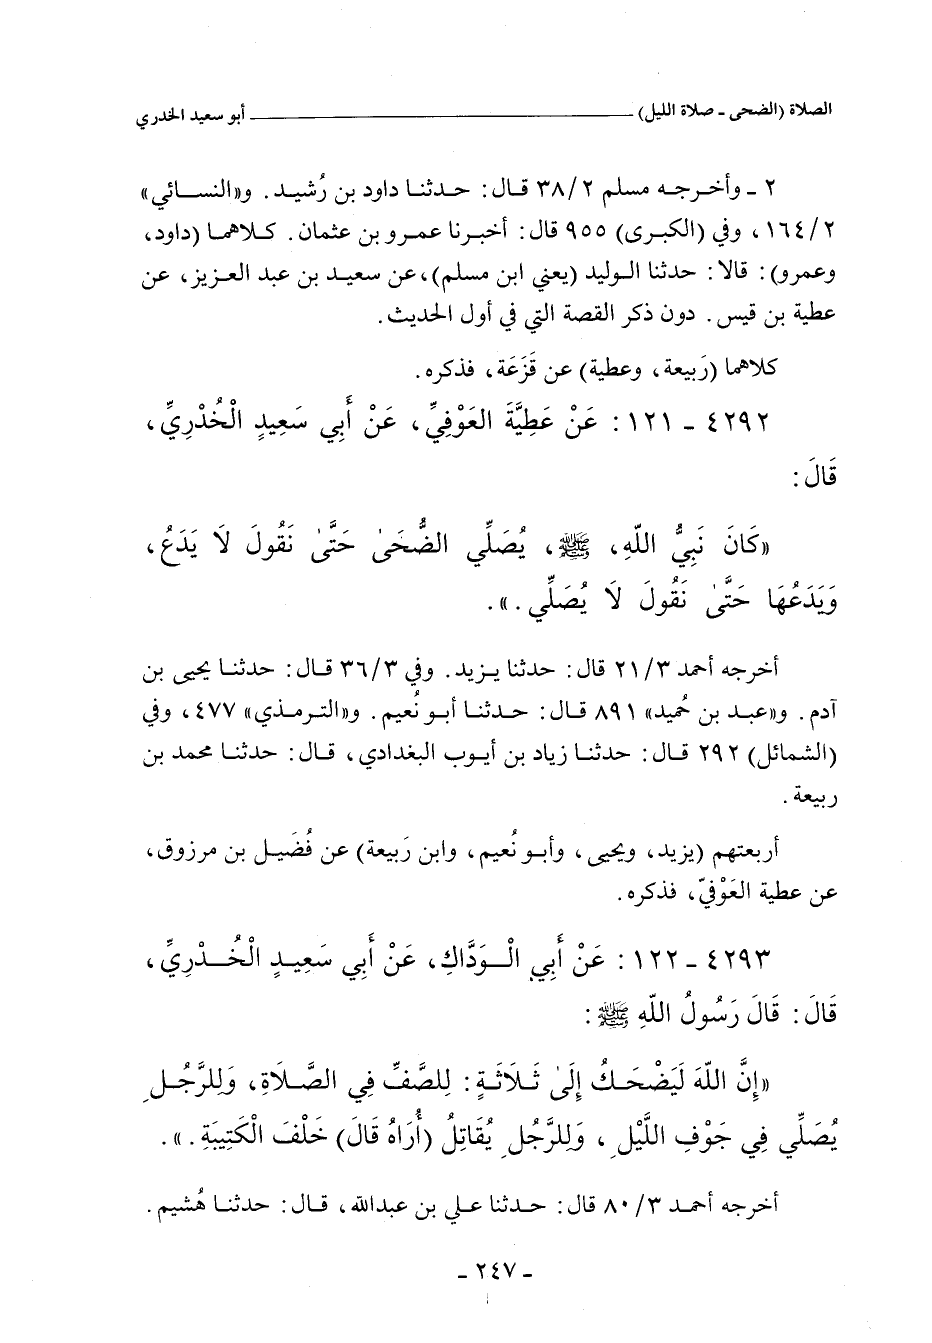 الصلاة (الضحى - صلاة الليل) ــــــــــــــــــــــــــــــــ أبو سعيد الخدري
٢ - وأخرجه مسلم ٣٨/٢ قال: حدثنا داود بن رُشيد. و«النسائي»
١٦٤/٢، وفي (الكبرى) ٩٥٥ قال: أخبرنا عمرو بن عثمان. كلاهما (داود،
وعمرو): قالا: حدثنا الوليد (يعني ابن مسلم)، عن سعيد بن عبد العزيز، عن
عطية بن قيس. دون ذكر القصة التي في أول الحديث.
كلاهما (رَبيعة، وعطية) عن قَزَعَة، فذكره.
٤٢٩٢ - ١٢١: عَنْ عَطِيَّةَ العَوْفِيِّ، عَنْ أَبِي سَعِيدٍ الْخُدْرِيِّ،
قَالَ:
«كَانَ نَبِيُّ اللّهِ، ﷺ، يُصَلِّي الضُّحَىٰ حَتَّىٰ نَقُولَ لَا يَدَعُ،
وَيَدَعُهَا حَتَّىٰ نَقُولَ لَا يُصَلِّي.».
أخرجه أحمد ٢١/٣ قال: حدثنا يزيد. وفي ٣٦/٣ قال: حدثنا يحيى بن
آدم. و«عبد بن حُميد» ٨٩١ قال: حدثنا أبو نُعيم. و«الترمذي» ٤٧٧، وفي
(الشمائل) ٢٩٢ قال: حدثنا زياد بن أيوب البغدادي، قال: حدثنا محمد بن
ربيعة.
أربعتهم (يزيد، ويحيى، وأبو نُعيم، وابن رَبيعة) عن فُضَيل بن مرزوق،
عن عطية العَوْفيّ، فذكره.
٤٢٩٣ - ١٢٢: عَنْ أَبِي الْوَدَّاكِ، عَنْ أَبِي سَعِيدٍ الْخُدْرِيِّ،
قَالَ: قَالَ رَسُولُ اللّهِ ﷺ:
«إِنَّ اللّهَ لَيَضْحَكُ إِلَىٰ ثَلَاثَةٍ: لِلصَّفِّ فِي الصَّلَاةِ، وَلِلرَّجُلِ
يُصَلِّي فِي جَوْفِ اللَّيْلِ، وَلِلرَّجُلِ يُقَاتِلُ (أُرَاهُ قَالَ) خَلْفَ الْكَتِيبَةِ.».
أخرجه أحمد ٨٠/٣ قال: حدثنا علي بن عبدالله، قال: حدثنا هُشيم.
- ٢٤٧ -